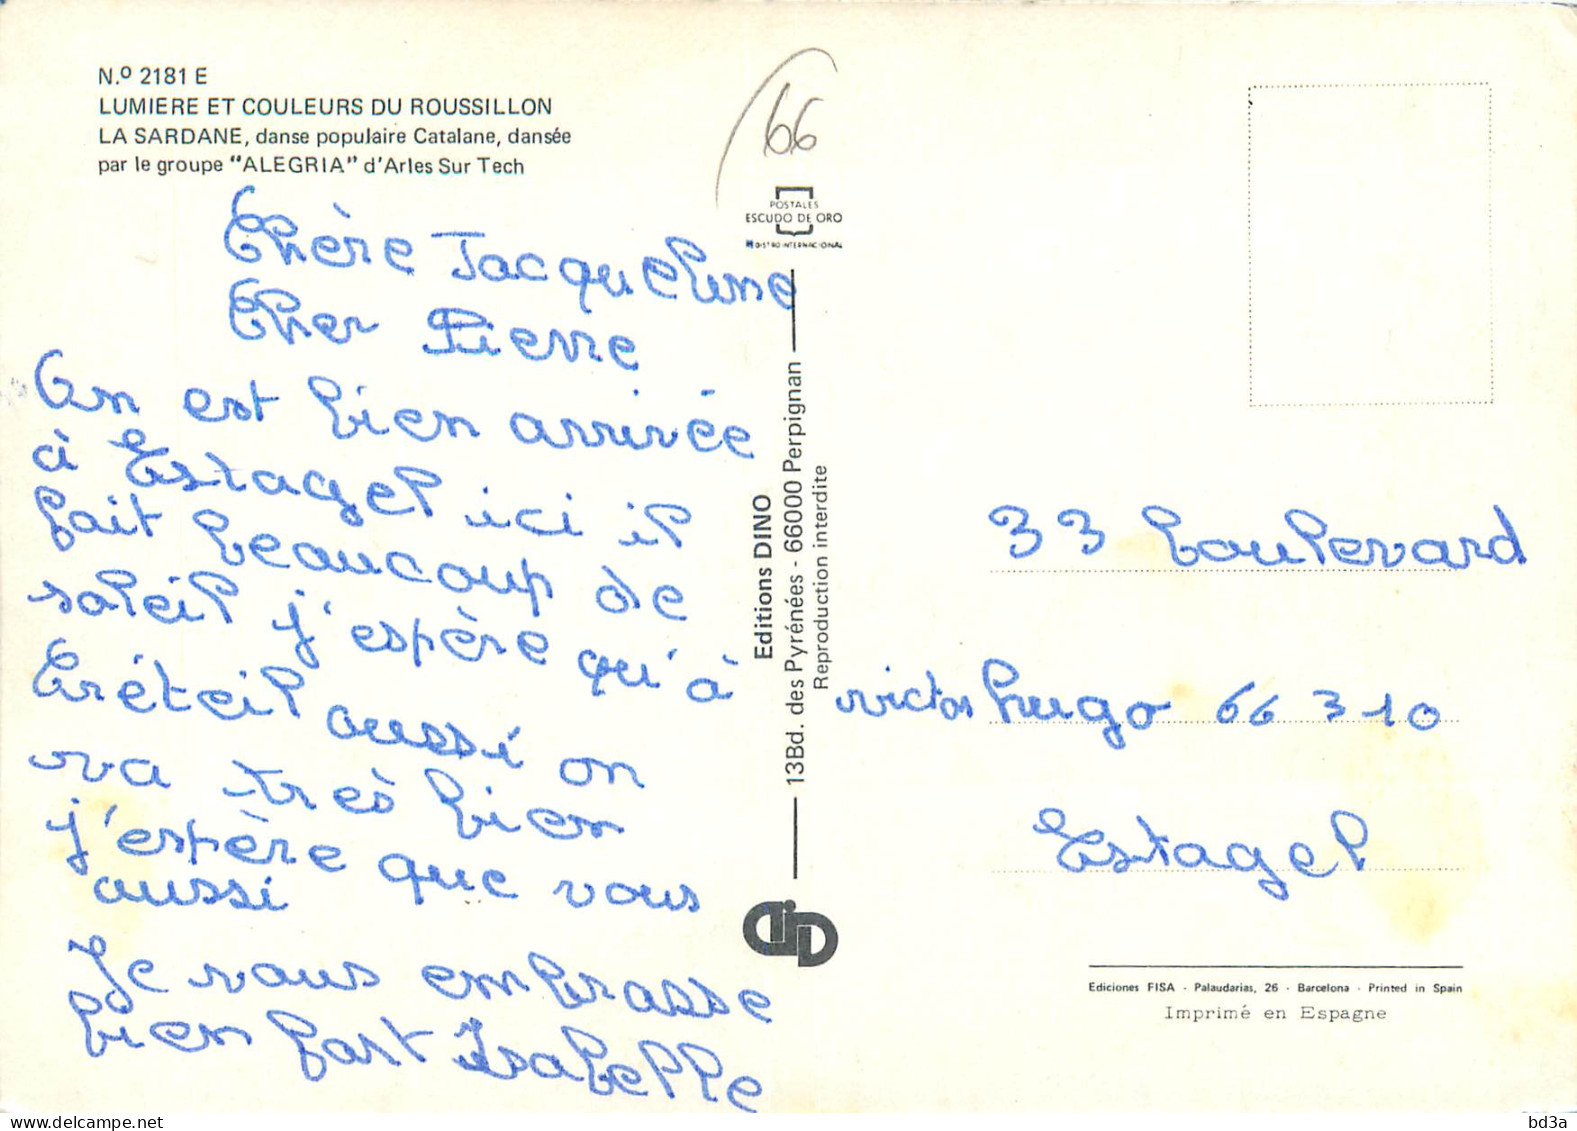 N.º 2181 E
LUMIERE ET COULEURS DU ROUSSILLON
LA SARDANE, danse populaire Catalane, dansée
par le groupe "ALEGRIA" d'Arles Sur Tech
66
POSTALES
ESCUDO DE ORO
DISTRO INTERNACIONAL
Chère Jacqueline
Cher Pierre
On est bien arrivée
à Estagel ici il
fait beaucoup de
soleil j'espère qu'à
Créteil aussi on
va très bien
j'espère que vous
aussi
Je vous embrasse
bien fort Isabelle
Editions DINO
13Bd. des Pyrénées - 66000 Perpignan
Reproduction interdite
33 boulevard
victor hugo 66 310
Estagel
Ediciones FISA - Palaudarias, 26 - Barcelona - Printed in Spain
Imprimé en Espagne
bd3a